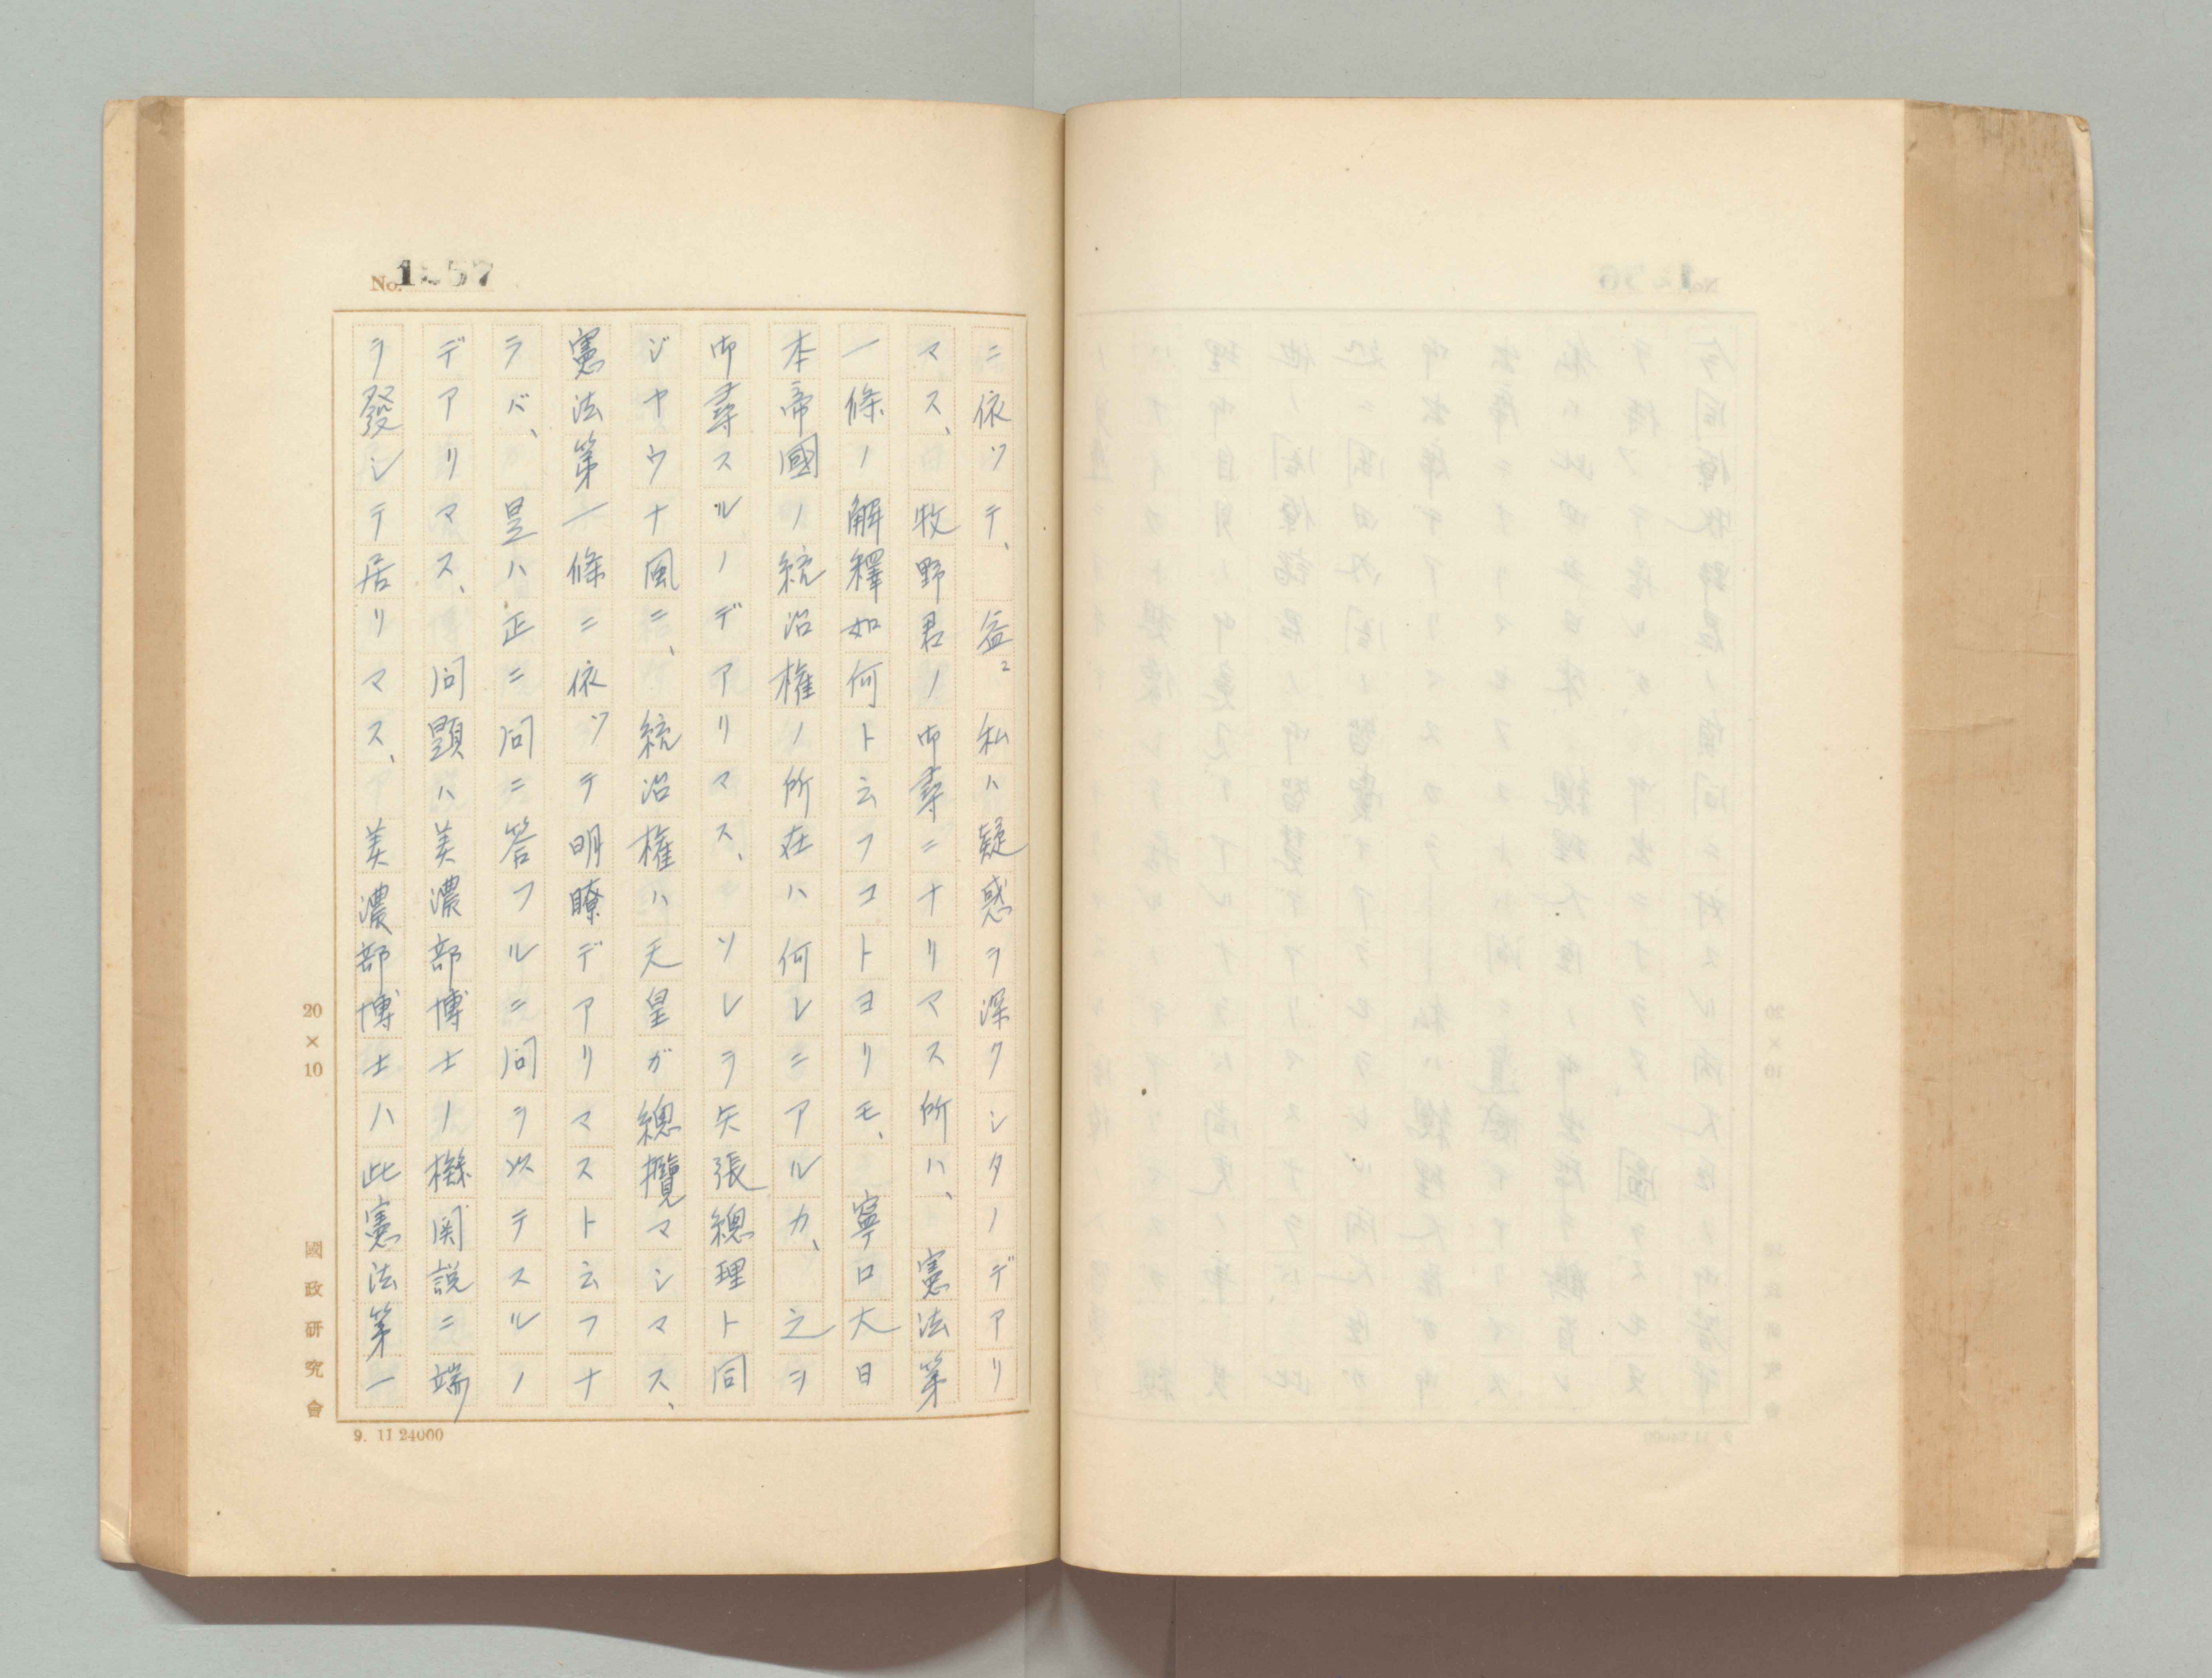 No. 1257
ニ依ツテ、益〻私ハ疑惑ヲ深クシタノデアリ
マス、牧野君ノ御尋ニナリマス所ハ、憲法第
一條ノ解釋如何ト云フコトヨリモ、寧ロ大日
本帝國ノ統治權ノ所在ハ何レニアルカ、之ヲ
御尋スルノデアリマス、ソレヲ矢張總理ト同
ジヤウナ風ニ、統治權ハ天皇ガ總攬マシマス、
憲法第一條ニ依ツテ明瞭デアリマスト云フナ
ラバ、是ハ正ニ問ニ答フルニ問ヲ以テスルノ
デアリマス、問題ハ美濃部博士ノ機関説ニ端
ヲ發シテ居リマス、美濃部博士ハ此憲法第一
20×10
國政研究會
9. 11 24000